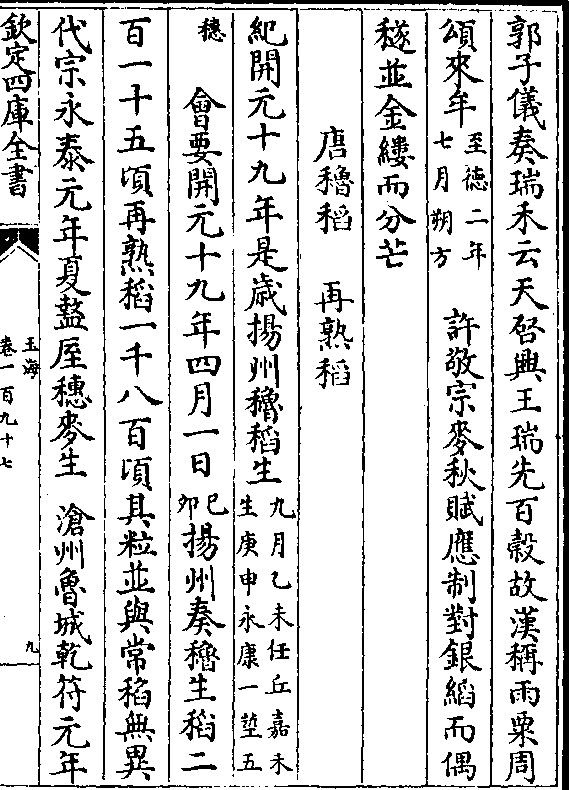 郭子儀奏瑞禾云天啓興王瑞先百穀故漢稱雨粟周
頌來牟至德二年七月朔方 許敬宗麥秋賦應制對銀縚而偶
穟並金縷而分芒
唐穭稻 再熟稻
紀開元十九年是歳揚州穭稻生九月乙未任丘嘉禾生庚申永康一莖五
穗 會要開元十九年四月一日己卯揚州奏穭生稻二
百一十五頃再熟稻一千八百頃其粒並與常稻無異
代宗永泰元年夏盩厔穭麥生 滄州魯城乾符元年
欽定四庫全書
玉海
卷一百九十七
九